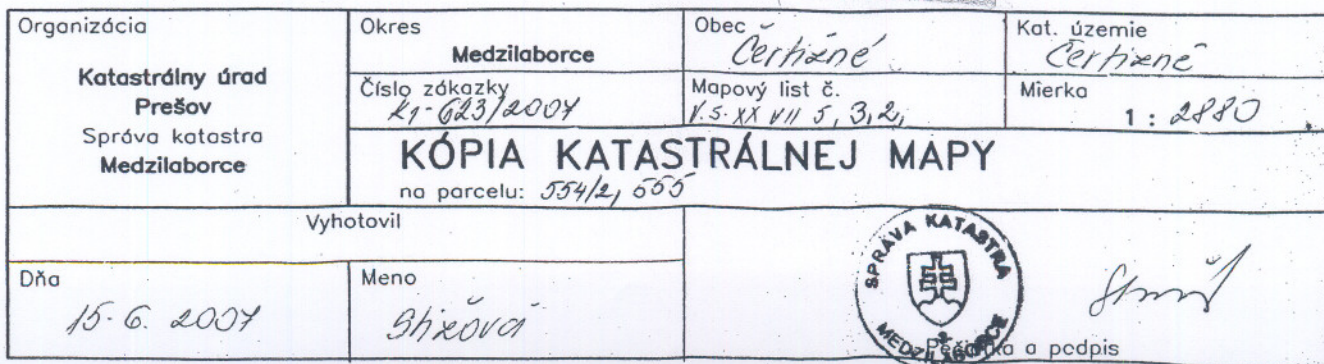 Organizácia
Katastrálny úrad
Prešov
Správa katastra
Medzilaborce
Okres
Medzilaborce
Obec
Čertižné
Kat. územie
Čertižné
Číslo zákazky
K1-623/2007
Mapový list č.
V.S. XX VII 5, 3, 2,
Mierka
1 : 2880
KÓPIA KATASTRÁLNEJ MAPY
na parcelu: 554/2, 555
Vyhotovil
Dňa
15.6. 2007
Meno
SPRÁVA KATASTRA
MEDZILABORCE
Pečiatka a podpis